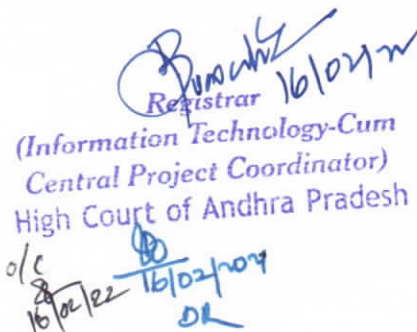 16/02/22
Registrar
(Information Technology-Cum
Central Project Coordinator)
High Court of Andhra Pradesh
o/c
16/02/22
16/02/2021
DR